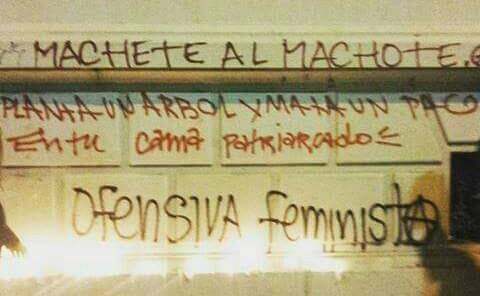 MACHETE AL MACHOTE.
PLANTA UN ARBOL Y MATA UN PACO
En tu cama patriarcado
Ofensiva feminista